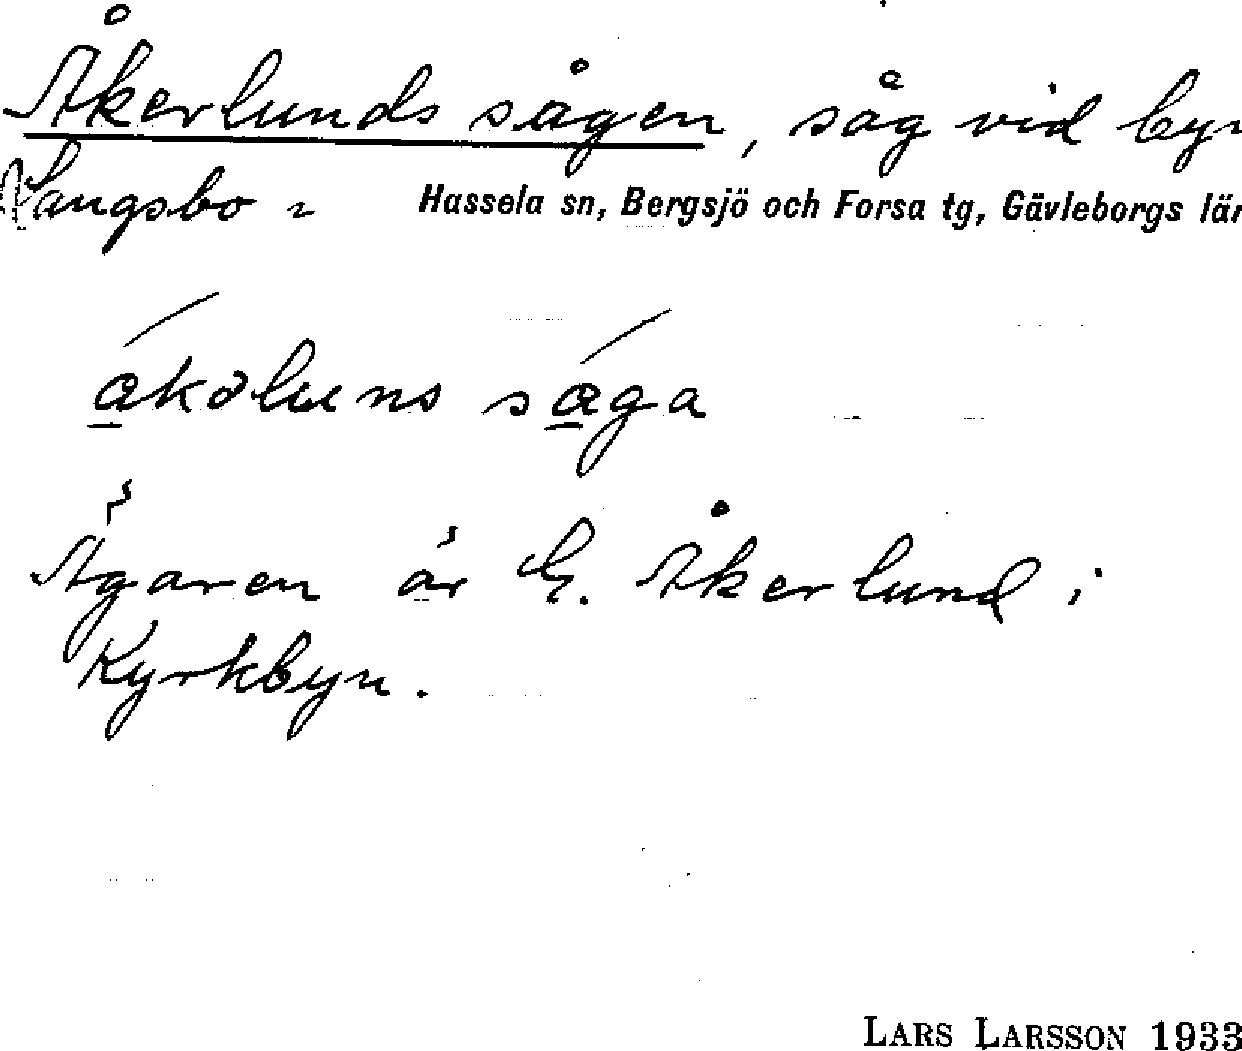 Åkerlunds sågen, såg vid byn
Hassela sn, Bergsjö och Forsa tg, Gävleborgs län
ákəluns sága
Ägaren är E. Åkerlund i
Kyrkbyn.
LARS LARSSON 1933